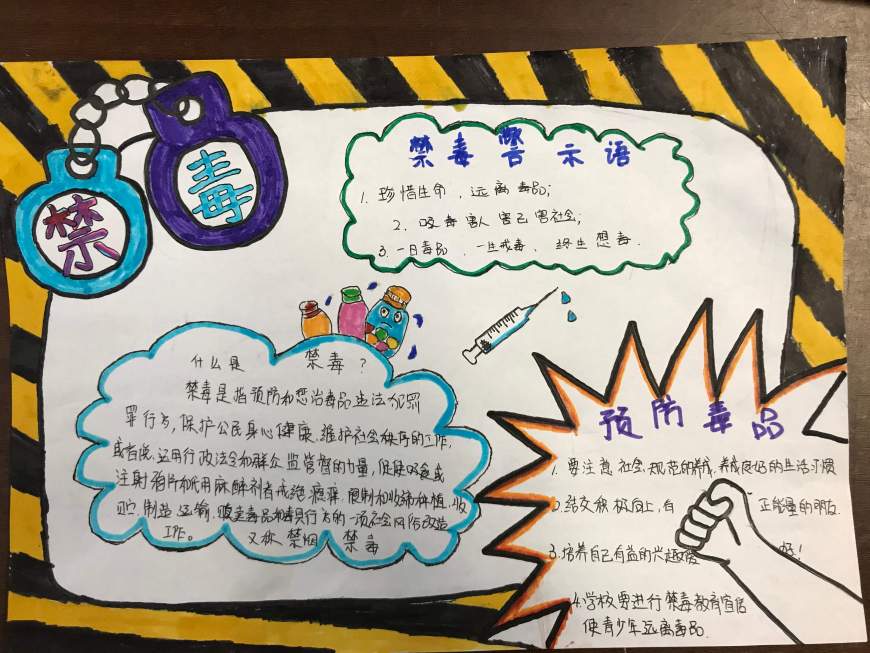 禁
毒
禁毒警示语
1. 珍惜生命、远离毒品；
2. 吸毒害人害己害社会；
3. 一日毒品、一生戒毒、终生想毒.
什么是禁毒?
禁毒是指预防和惩治毒品违法犯罪
罪行为,保护公民身心健康,维护社会秩序的工作,
或者说,运用行政法令和群众监管督的力量,促使吸食或
注射鸦片和使用麻醉剂者戒绝瘾癖,限制和收缩种植,收
贮,制造,运输,贩卖毒品和毒具行为的一项社会风俗改造
工作。又称禁烟禁毒
预防毒品
1. 要注意社会规范的养成,养成良好的生活习惯
2. 结交积极向上,有正能量的朋友.
3. 培养自己有益的兴趣爱好!
4. 学校要进行禁毒教育宣传
使青少年远离毒品.